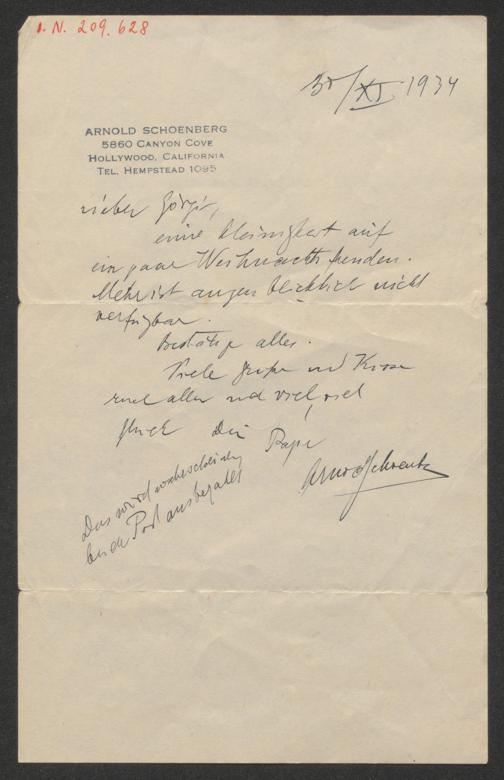 I. N. 209.628
30/XI. 1934
ARNOLD SCHOENBERG
5860 CANYON COVE
HOLLYWOOD, CALIFORNIA
TEL. HEMPSTEAD 1095
Lieber Görgi,
eine Kleinigkeit auf
ein paar Weihnachtsfreuden.
Mehr ist augenblicklich nicht
verfügbar.
Bestätige alles.
Viele Grüße und Küsse
Euch allen und viel, viel
Glück Dein Papa
Arnold Schoenberg
Das wird wahrscheinlich
bei der Post ausbezahlt